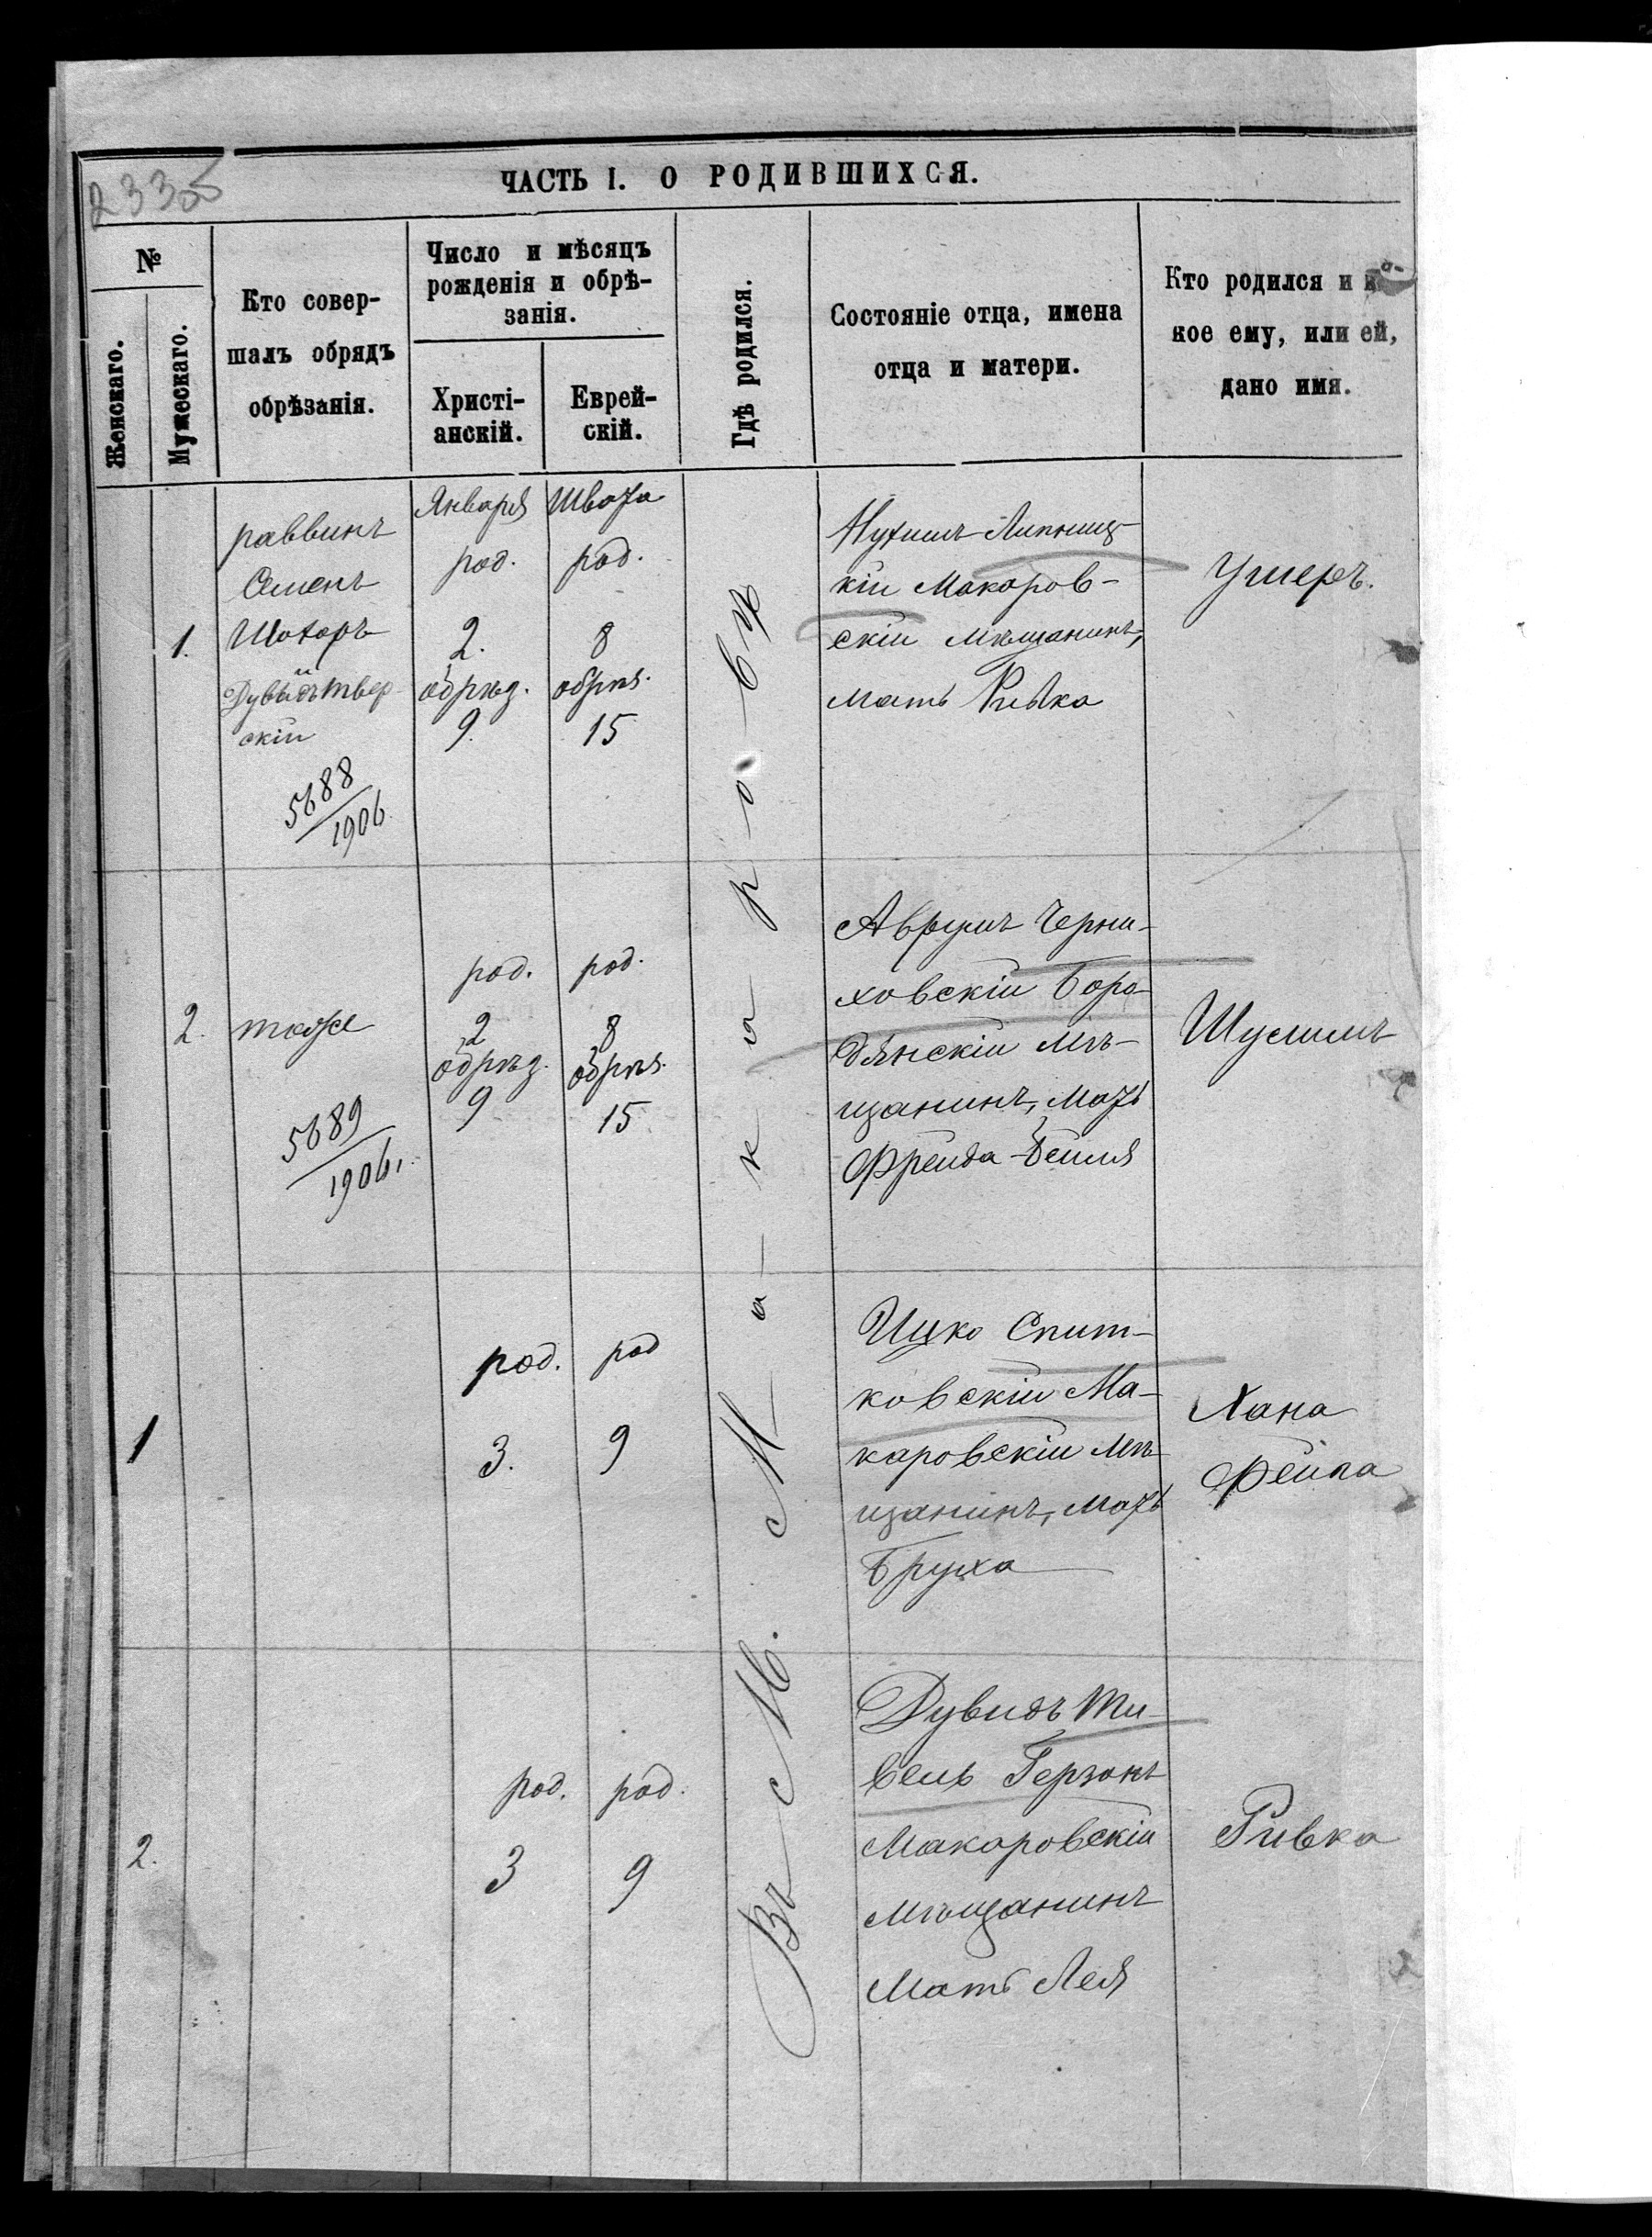 2335
ЧАСТЬ I. О РОДИВШИХСЯ.
№
Женскаго.
Мужескаго.
Кто совер-
шалъ обрядъ
обрѣзанія.
Число и мѣсяцъ
рожденія и обрѣ-
занія.
Христі-
анскій.
Еврей-
скій.
Гдѣ родился.
Состояніе отца, имена
отца и матери.
Кто родился и ка-
кое ему, или ей,
дано имя.
Въ М. Макаровѣ
1.
раввинъ
Семенъ
скій
5688
1906
Января
род.
2.
обрѣз.
9.
Швата
род.
8
обрѣз.
15
Нухимъ Липниц-
кій Макаров-
скій мѣщанинъ,
мать Ривка
Ушеръ.
2.
тоже
5689
1906.
род.
2
обрѣз.
9
род.
8
обрѣз.
15
Аврумъ Черни-
ховскій Боро-
дянскій мѣ-
щанинъ, мать
Фрейда-Бейля
Шулимъ
1
род.
3.
род
9
Ицко Спит-
ковскій Ма-
каровскій мѣ-
щанинъ, мать
Бруха
Хана
Фейга
2.
род.
3
род.
9
Дувидъ Ти-
вель Герзонъ
Макаровскій
мѣщанинъ
Мать Лея
Ривка